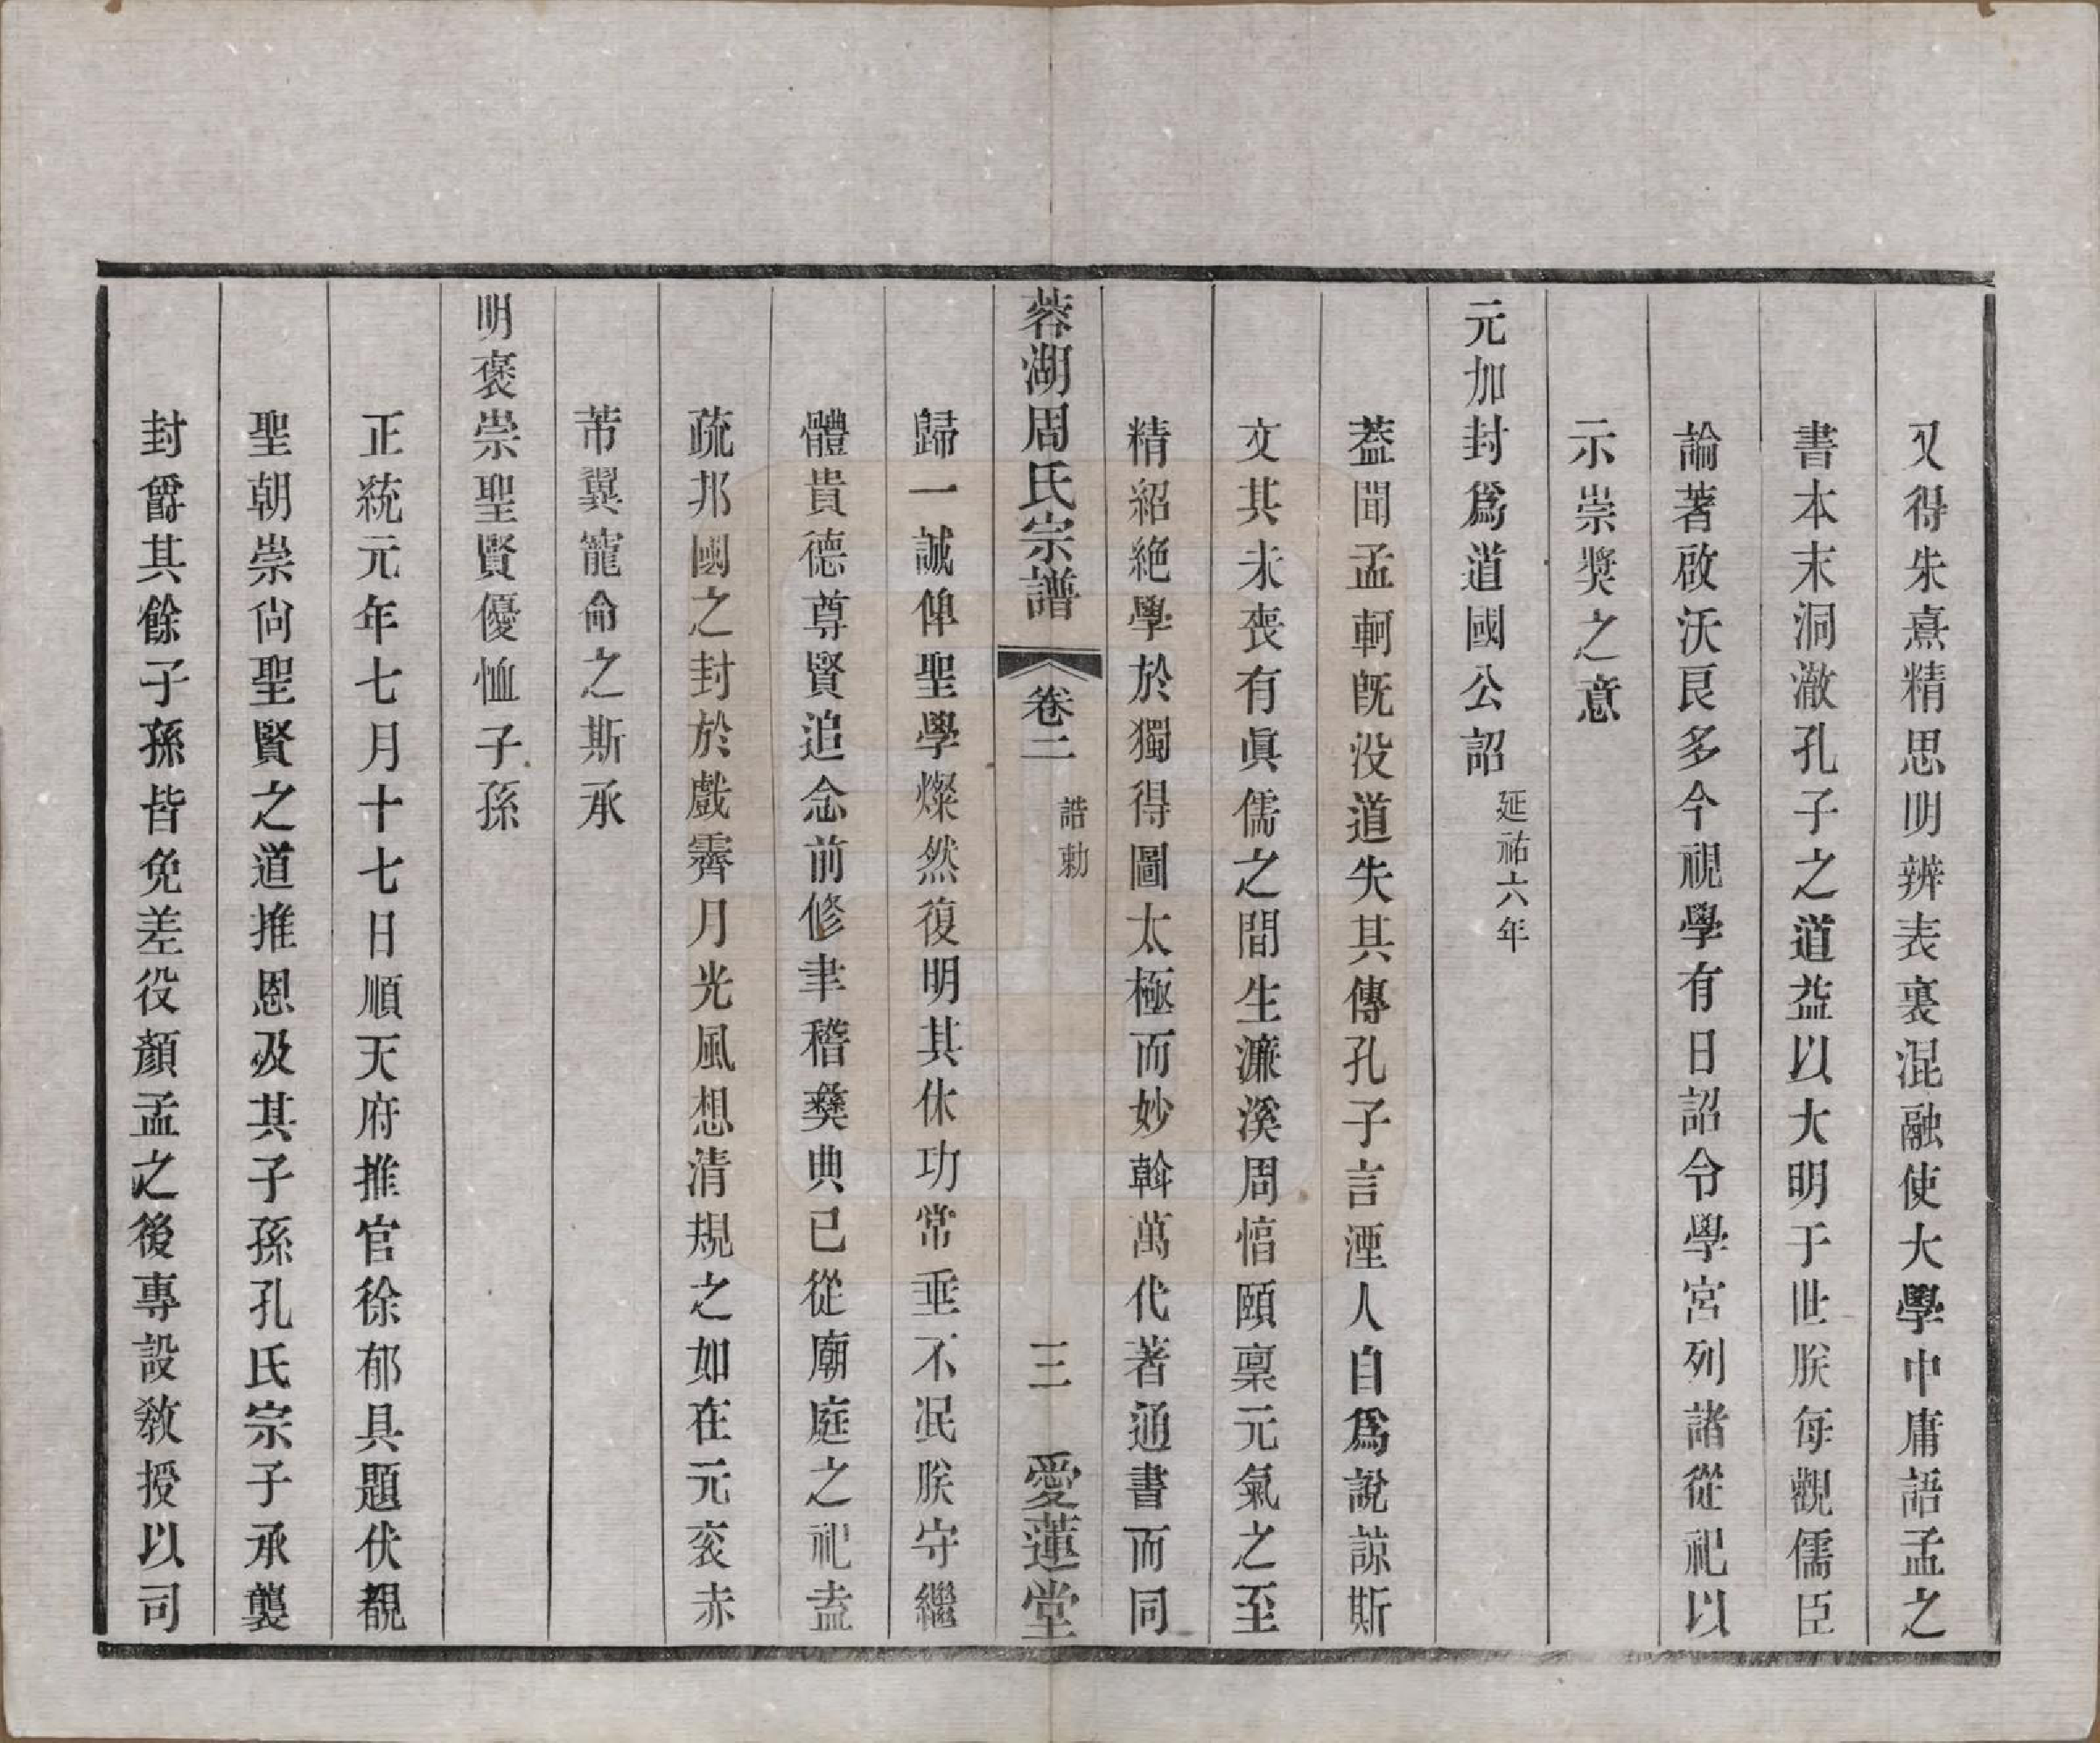 又得朱熹精思明辨表裏混融使大學中庸語孟之
書本末洞澈孔子之道益以大明于世朕每觀儒臣
論著啟沃良多今視學有日詔令學宮列諸從祀以
示崇獎之意
元加封爲道國公詔 延祐六年
葢聞孟軻旣没道失其傳孔子言湮人自爲說諒斯
文其未喪有眞儒之間生濂溪周惇頤稟元氣之至
精紹絶學於獨得圖太極而妙斡萬代著通書而同
蓉湖周氏宗譜 卷二 誥勅 三 愛蓮堂
歸一誠俾聖學燦然復明其休功常垂不泯朕守繼
體貴德尊賢追念前修聿稽彝典已從廟庭之祀盍
疏邦國之封於戲霽月光風想清規之如在元衮赤
芾翼寵命之斯承
明褒崇聖賢優恤子孫
正統元年七月十七日順天府推官徐郁具題伏覩
聖朝崇尙聖賢之道推恩及其子孫孔氏宗子承襲
封爵其餘子孫皆免差役顏孟之後專設敎授以司